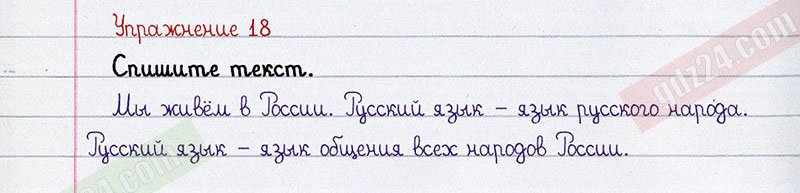 Упражнение 18
Спишите текст.
Мы живём в России. Русский язык – язык русского народа.
Русский язык – язык общения всех народов России.
gdz24.com